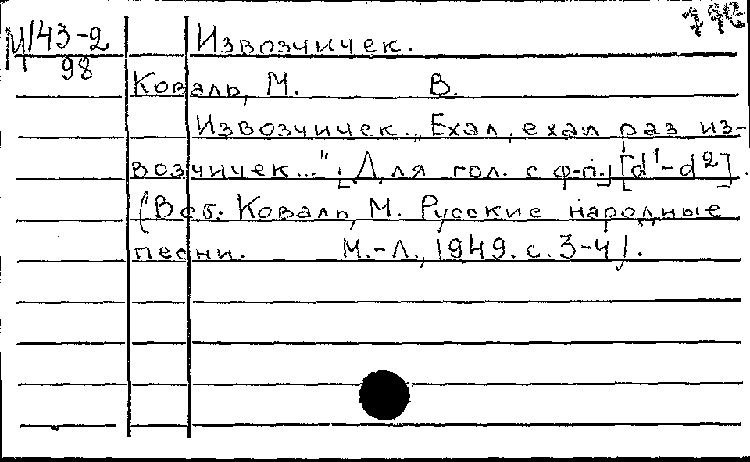 М143-2
98
Извозчичек.
Коваль, М. В.
Извозчичек. „Ехал, ехал раз из-
возчичек..." [Для гол. с ф-п.] [d¹-d²].
(В сб: Коваль, М. Русские народные
песни. М.-Л., 1949. с. 3-4).